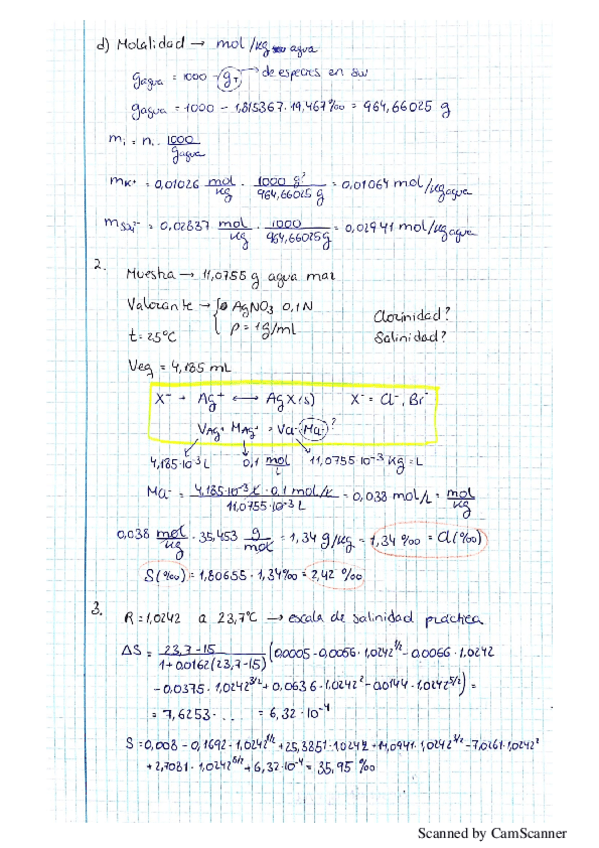 d) Molalidad → mol/kg agua
gagua = 1000 - gT → de especies en sw
gagua = 1000 - 1,815367 · 19,467‰ = 964,66025 g
mi = ni · 1000 / gagua
mK+ = 0,01026 mol/kg · 1000 g / 964,66025 g = 0,01064 mol/kgagua
mSO4²⁻ = 0,02837 mol/kg · 1000 / 964,66025 g = 0,02941 mol/kgagua
2. Muestra → 11,0755 g agua mar
Valorante → { AgNO3 0,1 N
ρ = 1 g/ml
Clorinidad?
t = 25°C
Salinidad?
Veq = 4,185 mL
X⁻ + Ag⁺ ⟷ AgX(s) X⁻ = Cl⁻, Br⁻
VAg+ MAg+ = VCl- MCl- ?
4,185·10⁻³ L 0,1 mol/L 11,0755·10⁻³ kg = L
MCl- = 4,185·10⁻³ L · 0,1 mol/L / 11,0755·10⁻³ L = 0,038 mol/L = mol/kg
0,038 mol/kg · 35,453 g/mol = 1,34 g/kg = 1,34‰ = Cl(‰)
S(‰) = 1,80655 · 1,34‰ = 2,42‰
3. R = 1,0242 a 23,7°C → escala de salinidad práctica
ΔS = 23,7-15 / 1+0,0162(23,7-15) (0,0005 - 0,0056 · 1,0242^1/2 - 0,0066 · 1,0242
- 0,0375 · 1,0242^3/2 + 0,0636 · 1,0242² - 0,0144 · 1,0242^5/2) =
= 7,6253 · ..... = 6,32·10⁻⁴
S = 0,008 - 0,1692 · 1,0242^1/2 + 25,3851 · 1,0242 + 14,0941 · 1,0242^3/2 - 7,0261 · 1,0242²
+ 2,7081 · 1,0242^5/2 + 6,32·10⁻⁴ = 35,95‰
Scanned by CamScanner